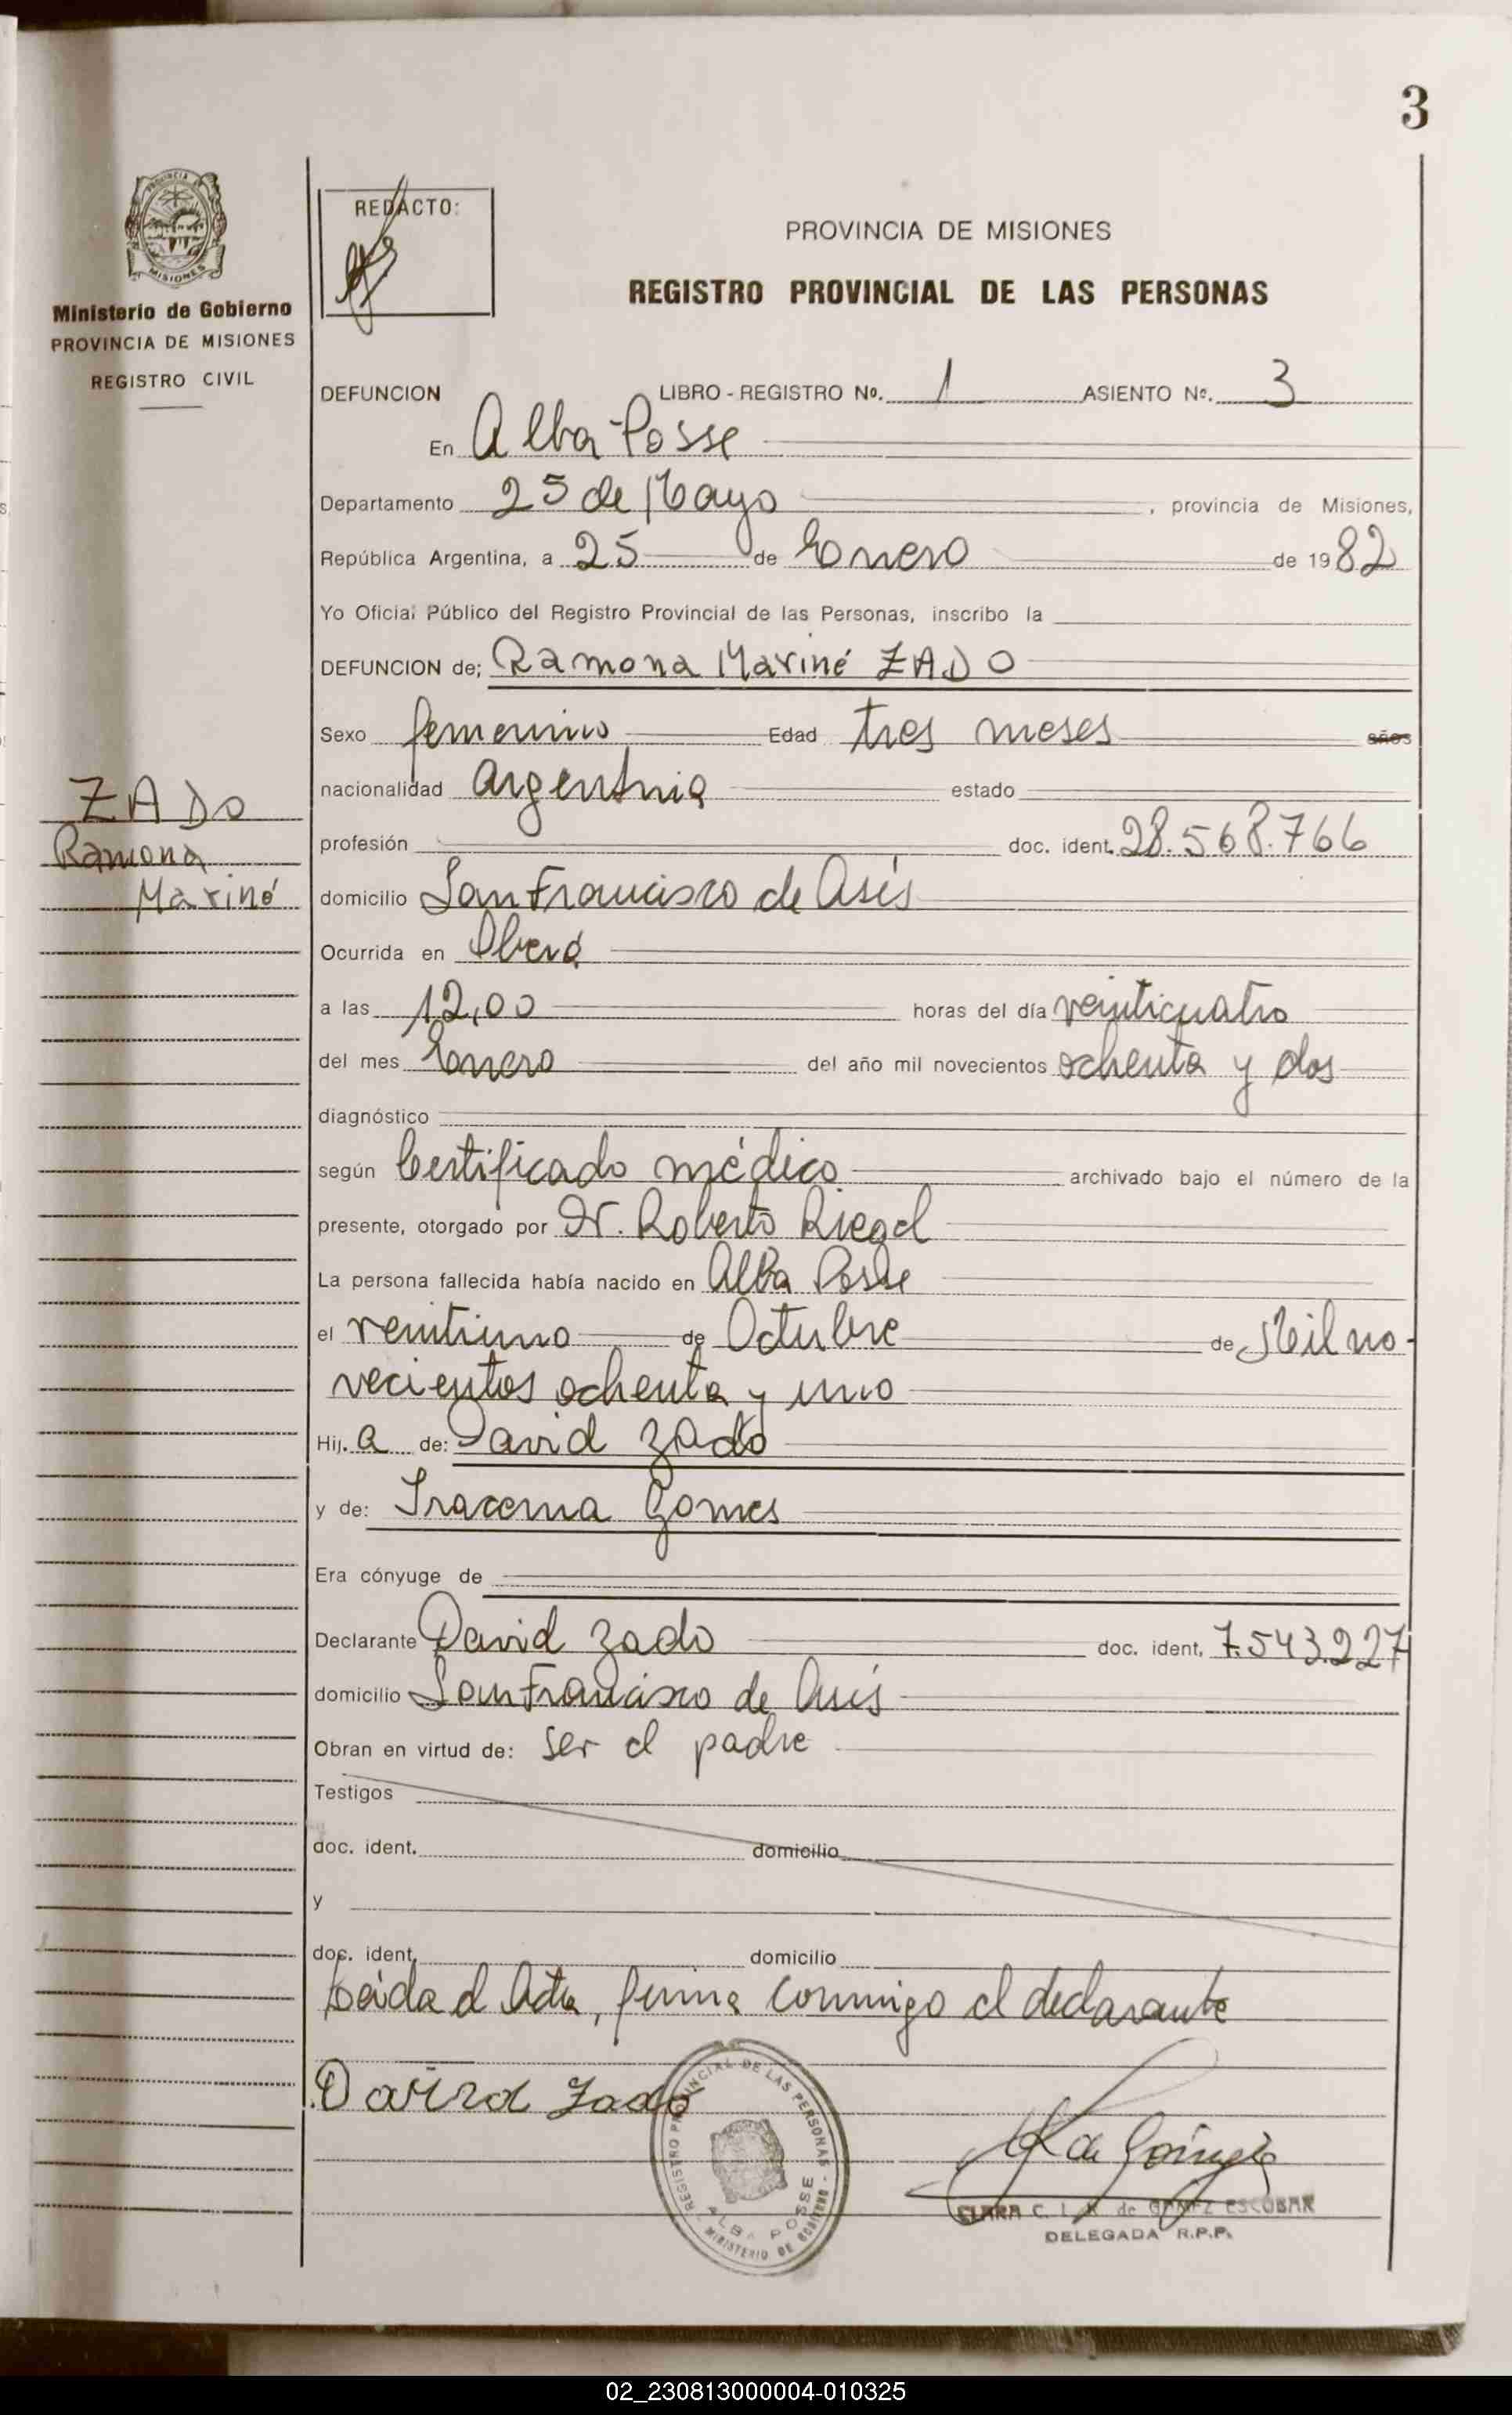 3
PROVINCIA
MISIONES
Ministerio de Gobierno
PROVINCIA DE MISIONES
REGISTRO CIVIL
REDACTO:
PROVINCIA DE MISIONES
REGISTRO PROVINCIAL DE LAS PERSONAS
DEFUNCION LIBRO - REGISTRO Nº. 1 ASIENTO Nº. 3
En Alba Posse
Departamento 25 de Mayo , provincia de Misiones,
República Argentina, a 25 de Enero de 1982
Yo Oficial Público del Registro Provincial de las Personas, inscribo la
DEFUNCION de; Ramona Mariné ZADO
Sexo femenino Edad tres meses años
nacionalidad argentina estado
ZADO
Ramona
Mariné
profesión doc. ident. 28.568.766
domicilio San Francisco de Asís
Ocurrida en Oberá
a las 12,00 horas del día veinticuatro
del mes Enero del año mil novecientos ochenta y dos
diagnóstico
según Certificado médico archivado bajo el número de la
presente, otorgado por Dr. Roberto Riegel
La persona fallecida había nacido en Alba Posse
el veintiuno de Octubre de Mil no-
vecientos ochenta y uno
Hij. a de: David Zado
y de: Iracema Gomes
Era cónyuge de
Declarante David Zado doc. ident. 7.543.227
domicilio San Francisco de Asís
Obran en virtud de: ser el padre
Testigos
doc. ident. domicilio
y
doc. ident. domicilio
Leida el Acta, firma conmigo el declarante
David Zado
REGISTRO PROVINCIAL DE LAS PERSONAS -
ALBA POSSE
MINISTERIO DE GOBIERNO
CLARA C. L. K. de GOMEZ ESCOBAR
DELEGADA R.P.P.
02_230813000004-010325